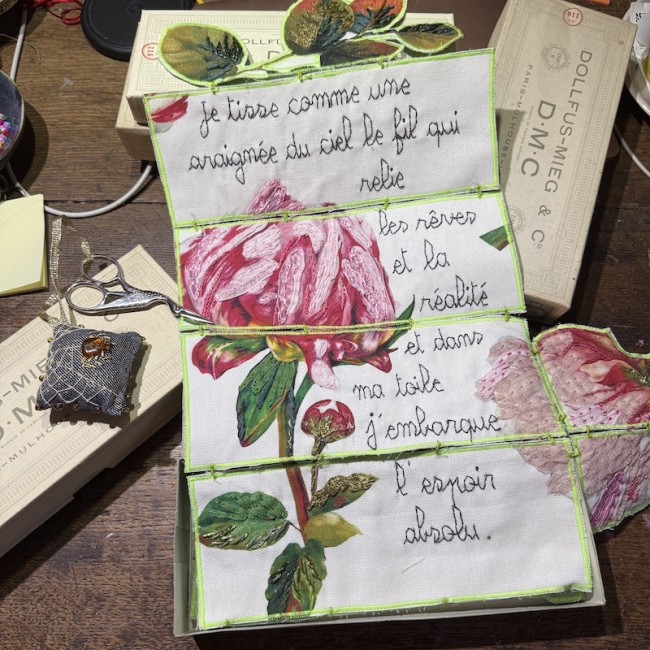 je tisse comme une
araignée du ciel le fil qui
relie
les rêves
et la
réalité
et dans
ma toile
j'embarque
l'espoir
absolu.
DOLLFUS-MIEG & Cie
PARIS-MULHOUSE
D·M·C
DOLLFUS
D.M.